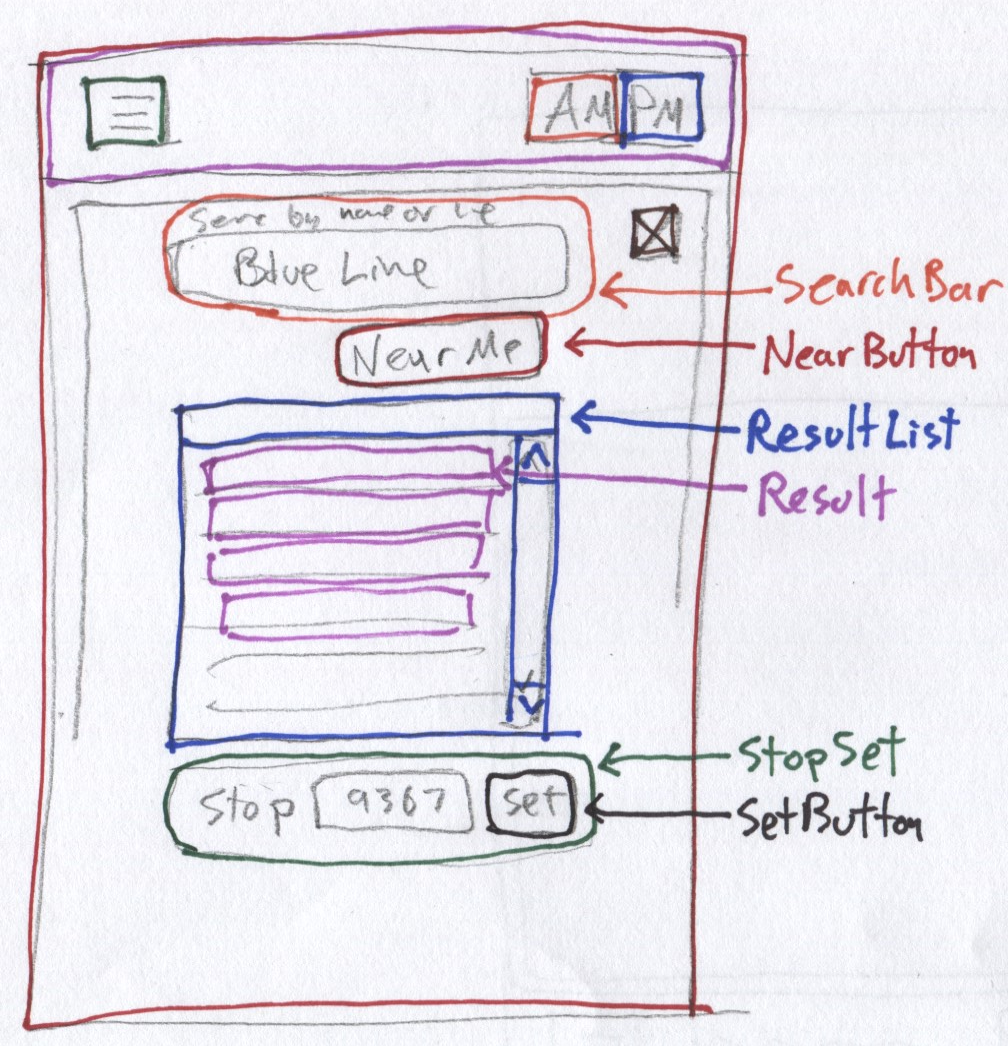 AM PM
by name or
Blue Line
SearchBar
Near Me
NearButton
ResultList
Result
StopSet
Stop 9367 set
SetButton